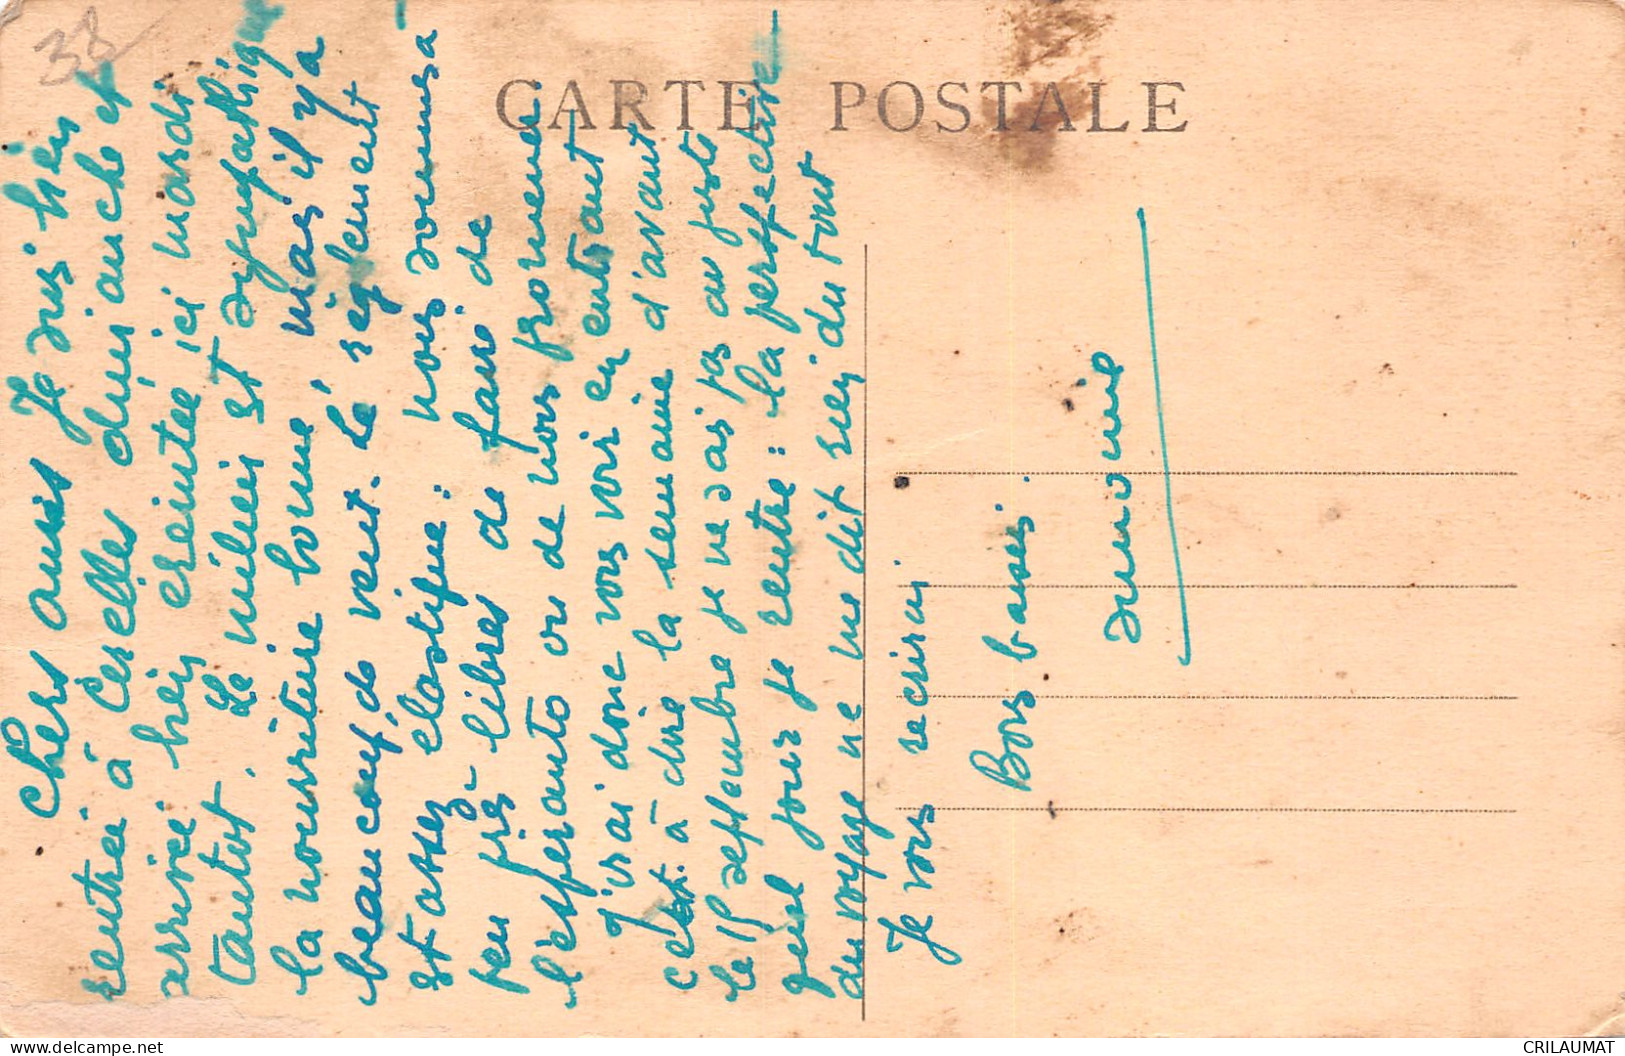 38
CARTE POSTALE
Chers amis Je suis bien
rentrée à Cerelles dimanche et
arrivée hier éreintée ici mardi
tantot. Le milieu est sympathique
la nourriture bonne, mais il y a
beaucoup de vent. Le règlement
est assez élastique: nous sommes à
peu près libres de faire de
l'esperanto ou de nous promener.
J'irai donc vous voir en entrant
c'est. à dire la semaine d'avant
le 15 septembre je ne sais pas au juste
quel jour je rentre: la perspective
du voyage ne me dit rien du tout
Je vous recrirai
Bons baisers.
CRILAUMAT